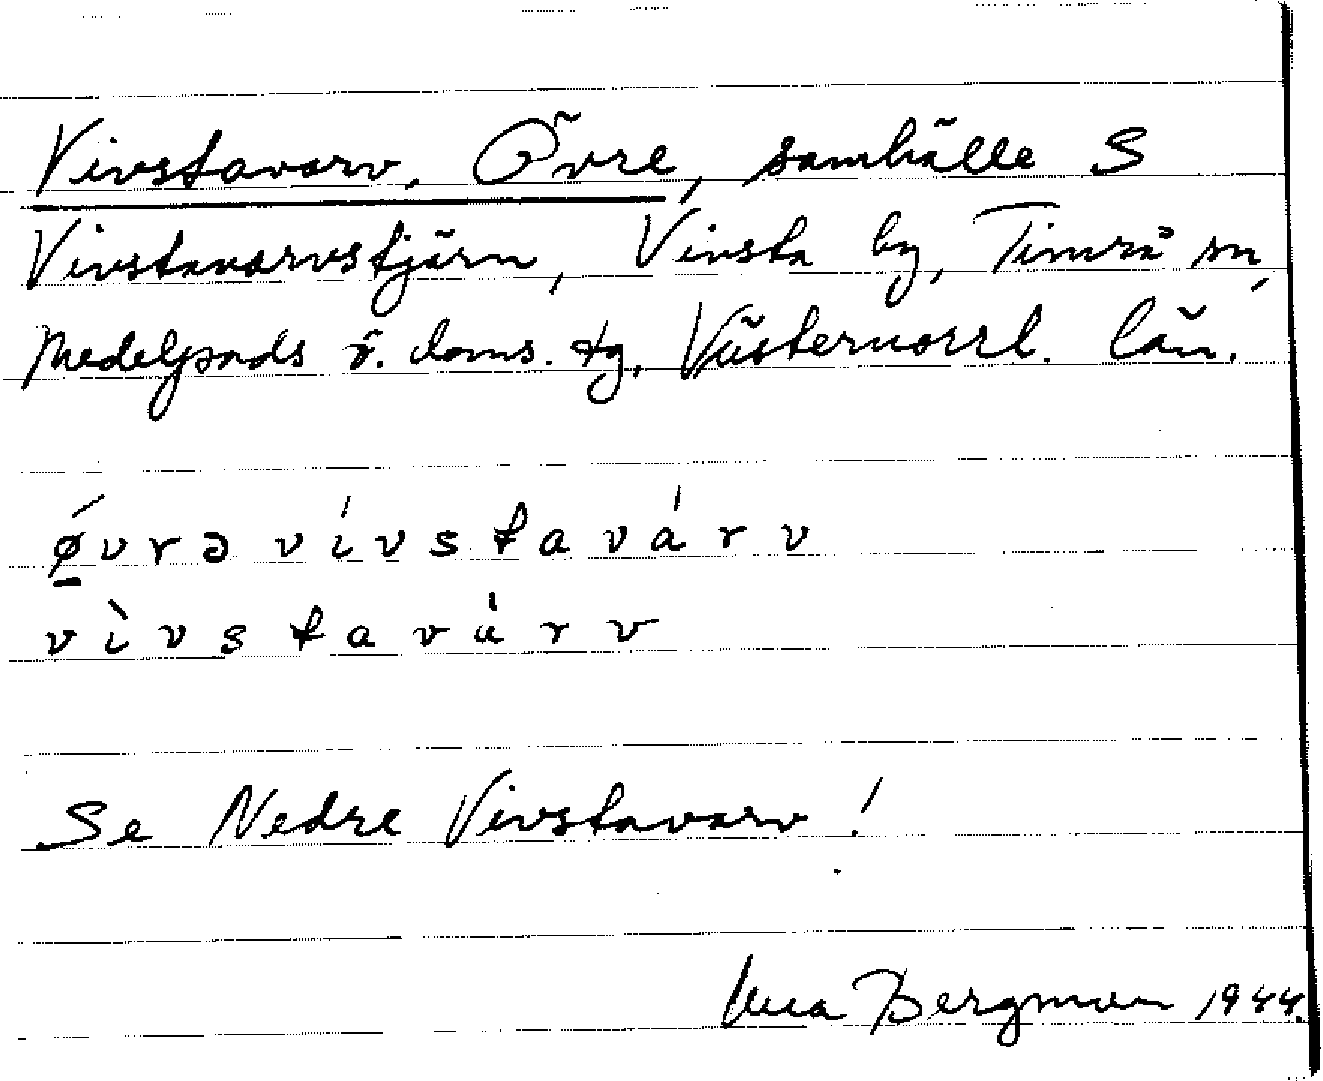 Vivstavarv, Övre, samhälle S
Vivstavarvstjärn, Vivsta by, Timrå sn,
Medelpads v. doms. tg, Västernorrl. län.
ǿvrə vívstavárv
vìvstavárv
Se Nedre Vivstavarv!
Bergman 1944.